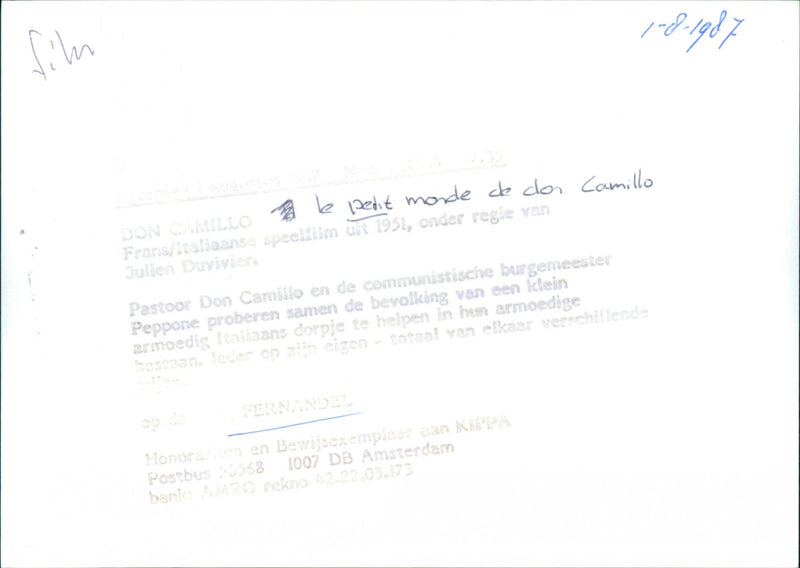 film
1-8-1987
augustus 1987
DON CAMILLO le petit monde de don Camillo
Frans/Italiaanse speelfilm uit 1951, onder regie van
Julien Duvivier.
Pastoor Don Camillo en de communistische burgemeester
Peppone proberen samen de bevolking van een klein
armoedig Italiaans dorpje te helpen in hun armoedige
bestaan. Ieder op zijn eigen - totaal van elkaar verschillende
wijze.
op de FERNANDEL
Honorarium en Bewijsexemplaar aan KIPPA
Postbus 50568 1007 DB Amsterdam
bank: AMRO rekno 42.22.03.173